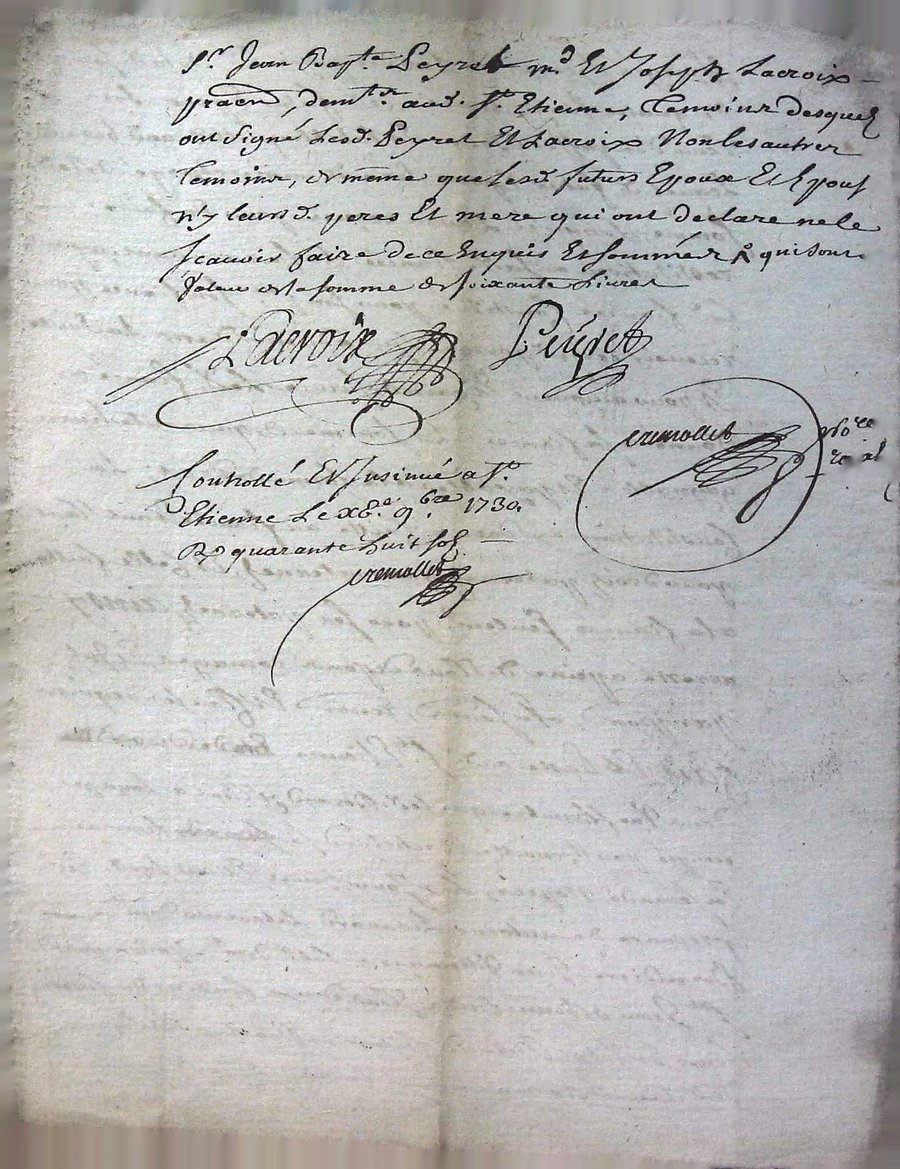 Sr. Jean Bapte. Peyret md. Et Joseph Lacroix
praen, demtr. aud. St. Etienne, temoins desquelz
ont signé Lesd. Peyret Et Lacroix Non les autres
temoins, de mème que lesd. futurs Epoux Et Epouse
n'y leurs d. peres Et mere qui ont declaré ne le
scavoir faire de ce Enquis Et sommés & qui sont
Valeur de la somme de soixante Livres
LaCroix
Peyret
cremollet
Controllé Et Insinué a St.
Etienne Le 9bre 1730.
R quarante huit sols
cremollet